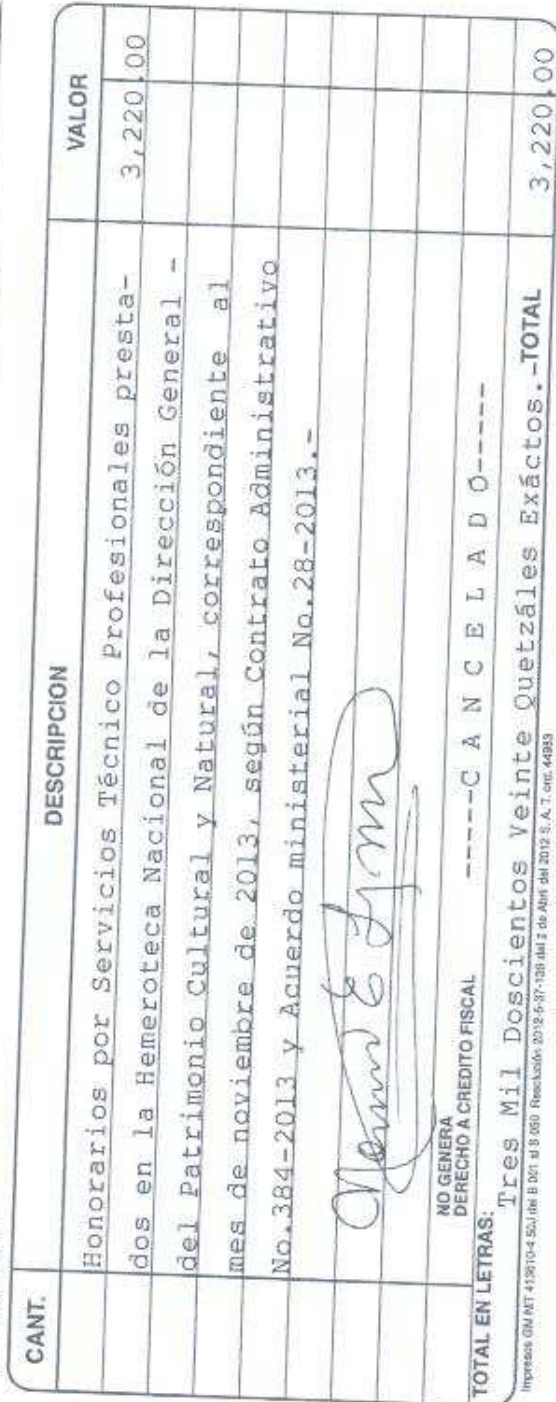 CANT. DESCRIPCION VALOR
Honorarios por Servicios Técnico Profesionales presta- 3,220.00
dos en la Hemeroteca Nacional de la Dirección General -
del Patrimonio Cultural y Natural, correspondiente al
mes de noviembre de 2013, según Contrato Administrativo
No.384-2013 y Acuerdo ministerial No.28-2013.-
NO GENERA
DERECHO A CREDITO FISCAL -----C A N C E L A D O-----
TOTAL EN LETRAS:
Tres Mil Doscientos Veinte Quetzáles Exáctos.-TOTAL 3,220.00
Impresos GM NIT 413810-4 50J de B 001 al B 050 Resolución 2012-5-37-139 del 2 de Abril del 2012 S. A. T. ord. 44983